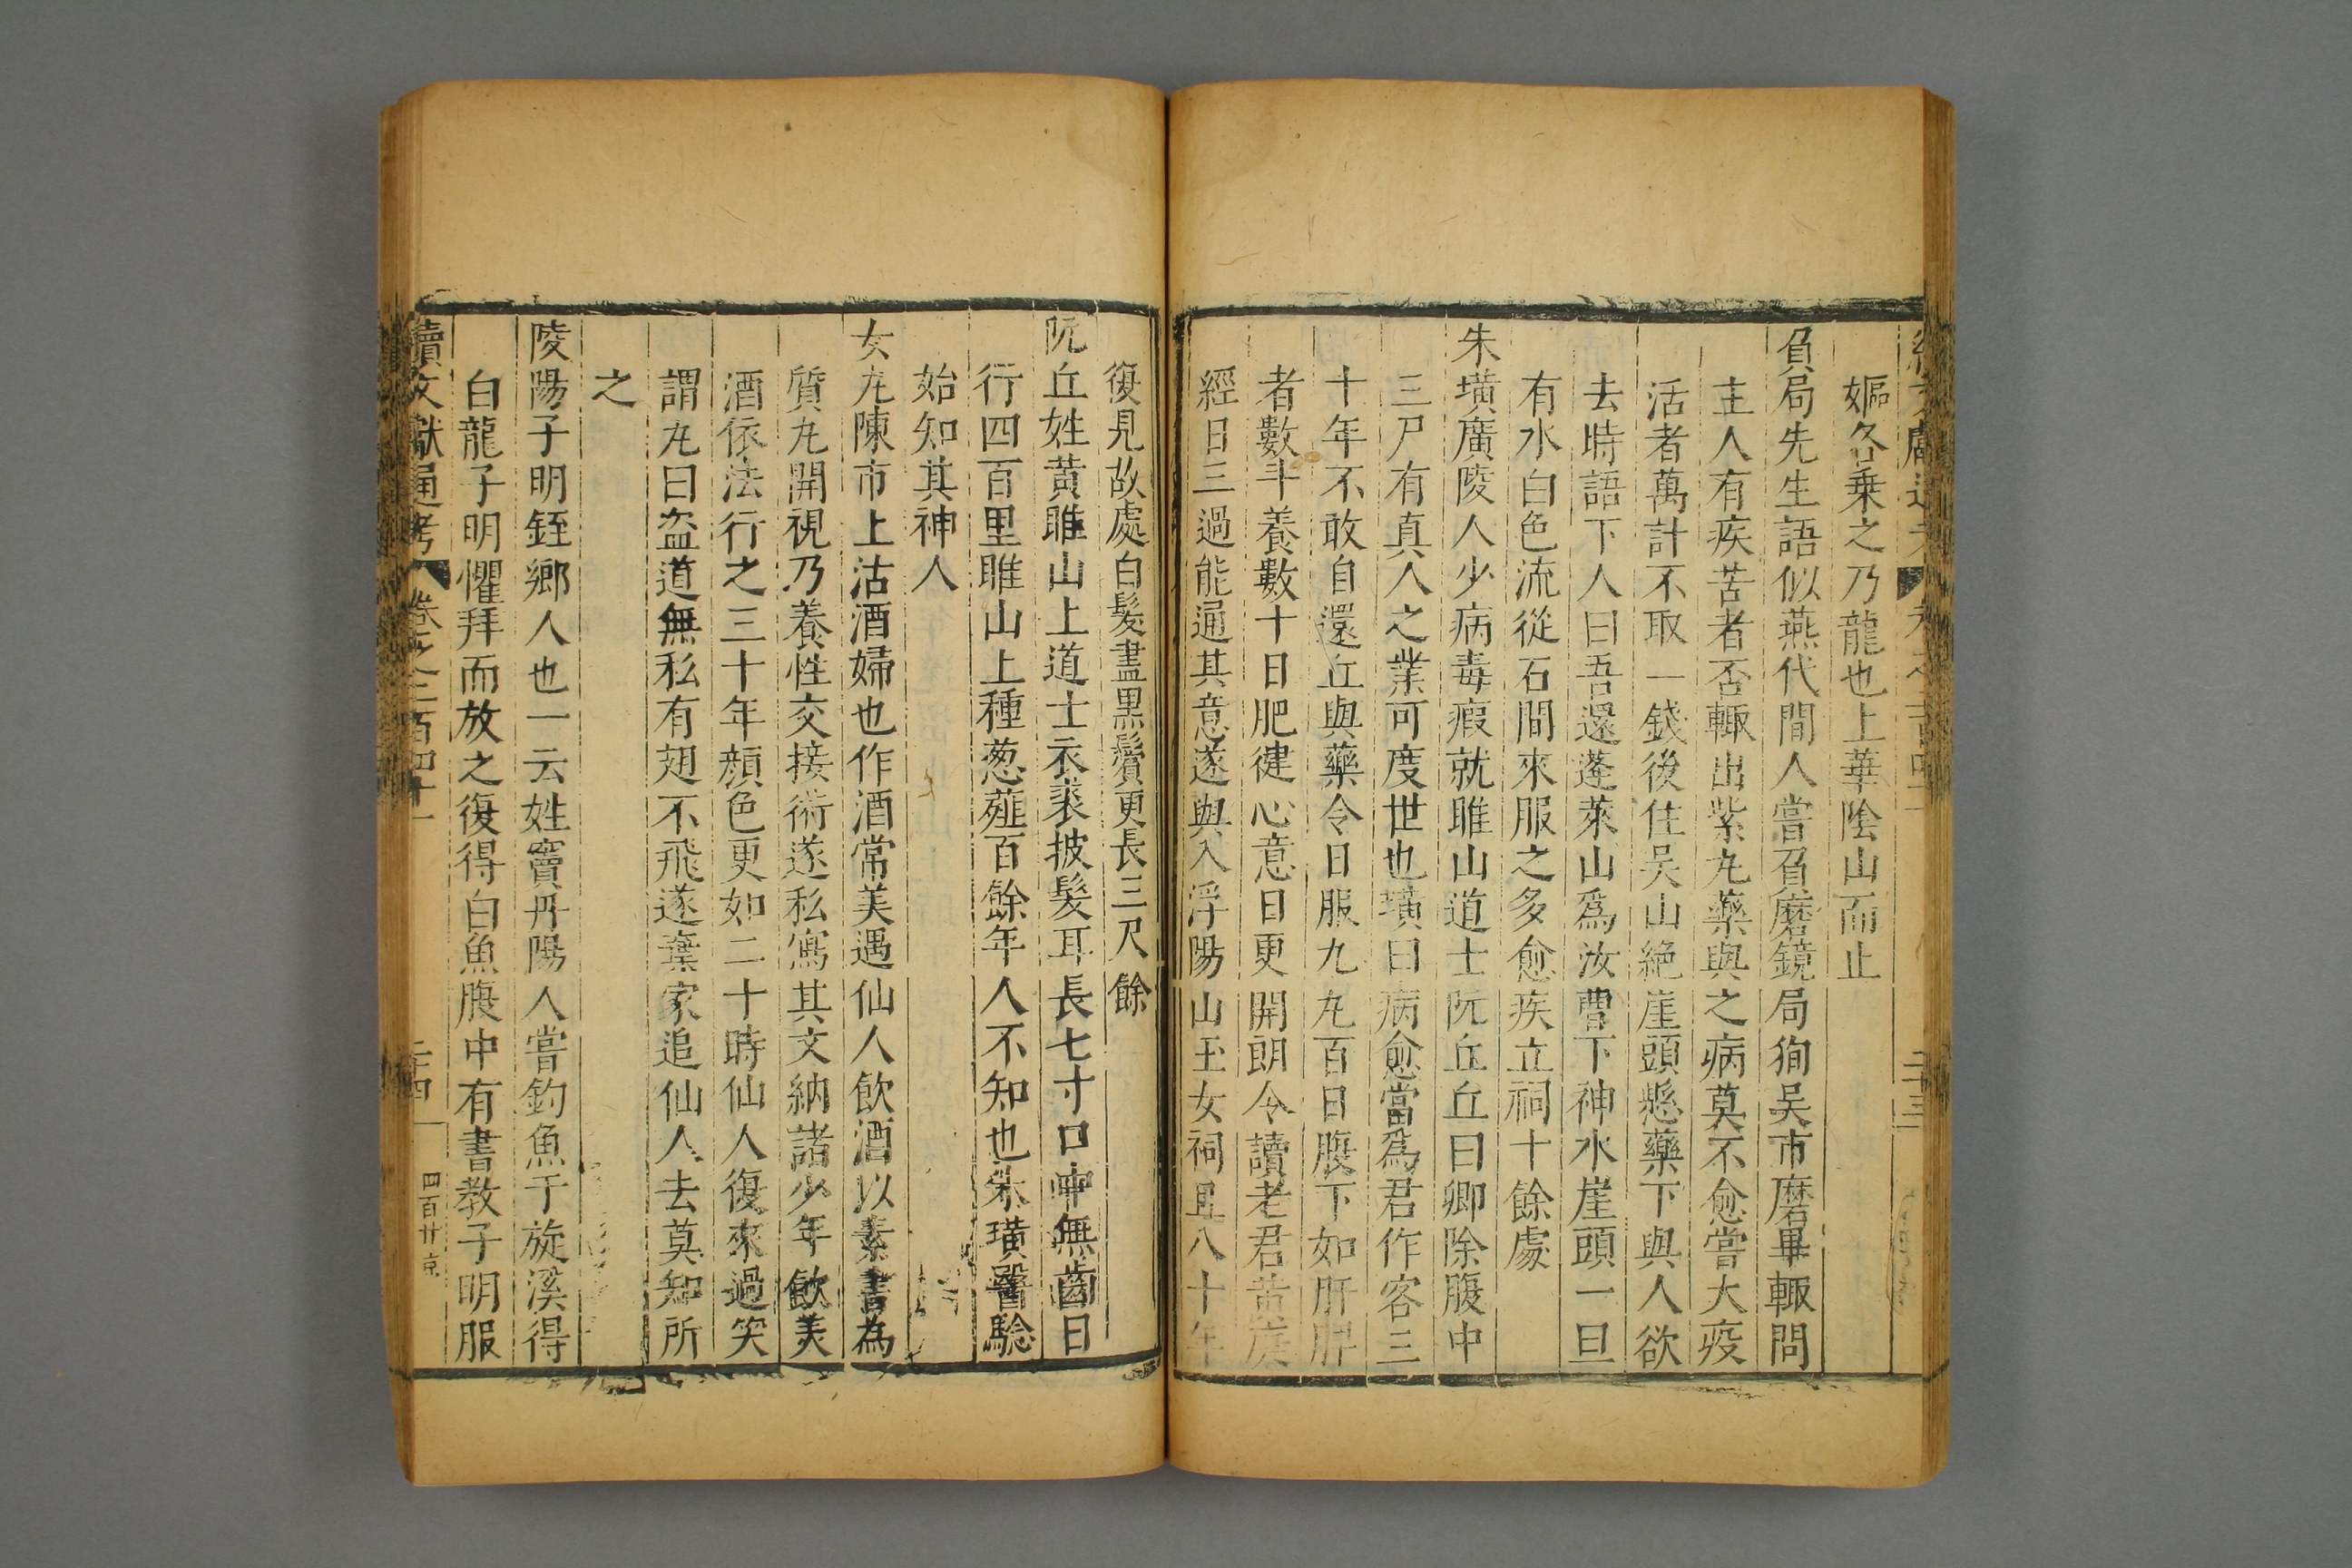 嫗各乗之乃龍也上華陰山而止
負局先生語似燕代間人嘗負磨鏡局狥吴市磨畢輙問
主人有疾苦者否輙出紫九藥與之病莫不愈嘗大疫
活者萬計不取一錢後住吴山絶崖頭懸藥下與人欲
去時語下人曰吾還蓬萊山爲汝曹下神水崖頭一旦
有水白色流從石間來服之多愈疾立祠十餘處
朱璜廣陵人少病毒瘕就睢山道士阮丘丘曰卿除腹中
三尸有真人之業可度世也璜曰病愈當爲君作客三
十年不敢自還丘與藥令日服九九百日腹下如肝脾
者數斗養數十日肥健心意日更開朗令讀老君黄庭
經日三過能通其意遂與入浮陽山玉女祠且八十年
復見故處白髮盡黒鬢更長三尺餘
阮丘姓黄睢山上道士衣裘披髮耳長七寸口中無齒日
行四百里睢山上種葱薤百餘年人不知也朱璜醫驗
始知其神人
女九陳市上沽酒婦也作酒常美遇仙人飲酒以素書為
質九開視乃養性交接術遂私寫其文納諸少年飲美
酒依法行之三十年顔色更如二十時仙人復來過笑
謂九曰盗道無私有翅不飛遂棄家追仙人去莫知所
之
陵陽子明銍鄉人也一云姓竇丹陽人嘗釣魚于旋溪得
白龍子明懼拜而放之復得白魚腹中有書教子明服
續文獻通考 卷之二百四十一 二十四 四百廿京